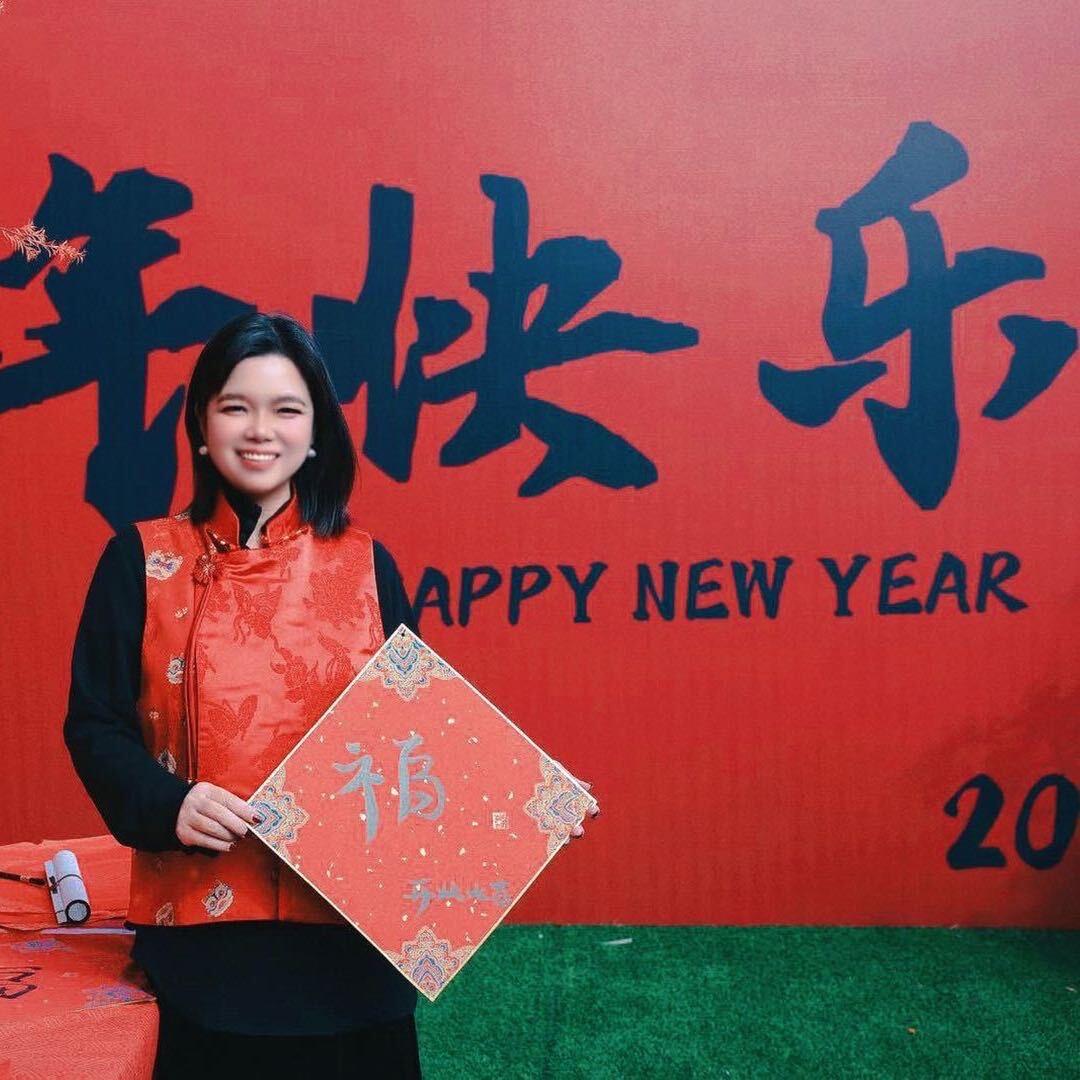 年快乐
APPY NEW YEAR
20
福